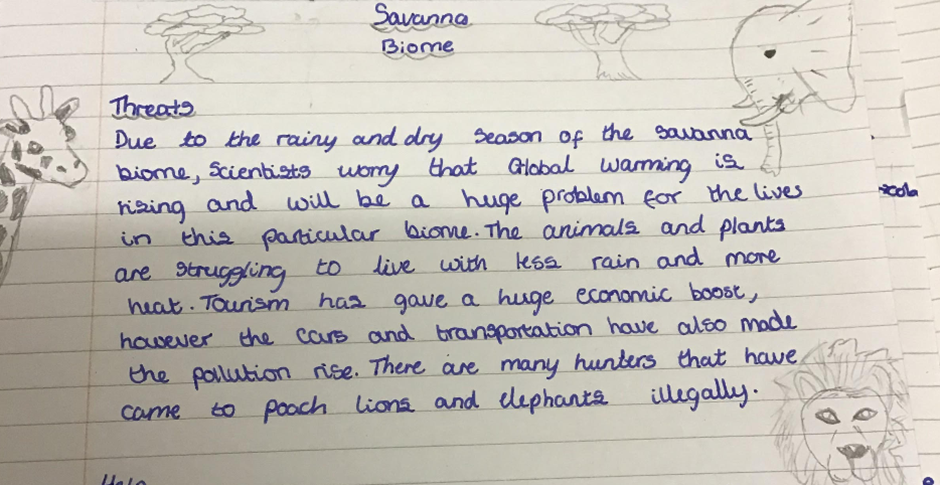 Savanna
Biome
Threats
Due to the rainy and dry season of the savanna
biome, Scientists worry that Global warming is
rising and will be a huge problem for the lives
in this particular biome. The animals and plants
are struggling to live with less rain and more
heat. Tourism has gave a huge economic boost,
however the cars and transportation have also made
the pollution rise. There are many hunters that have
came to poach lions and elephants illegally.